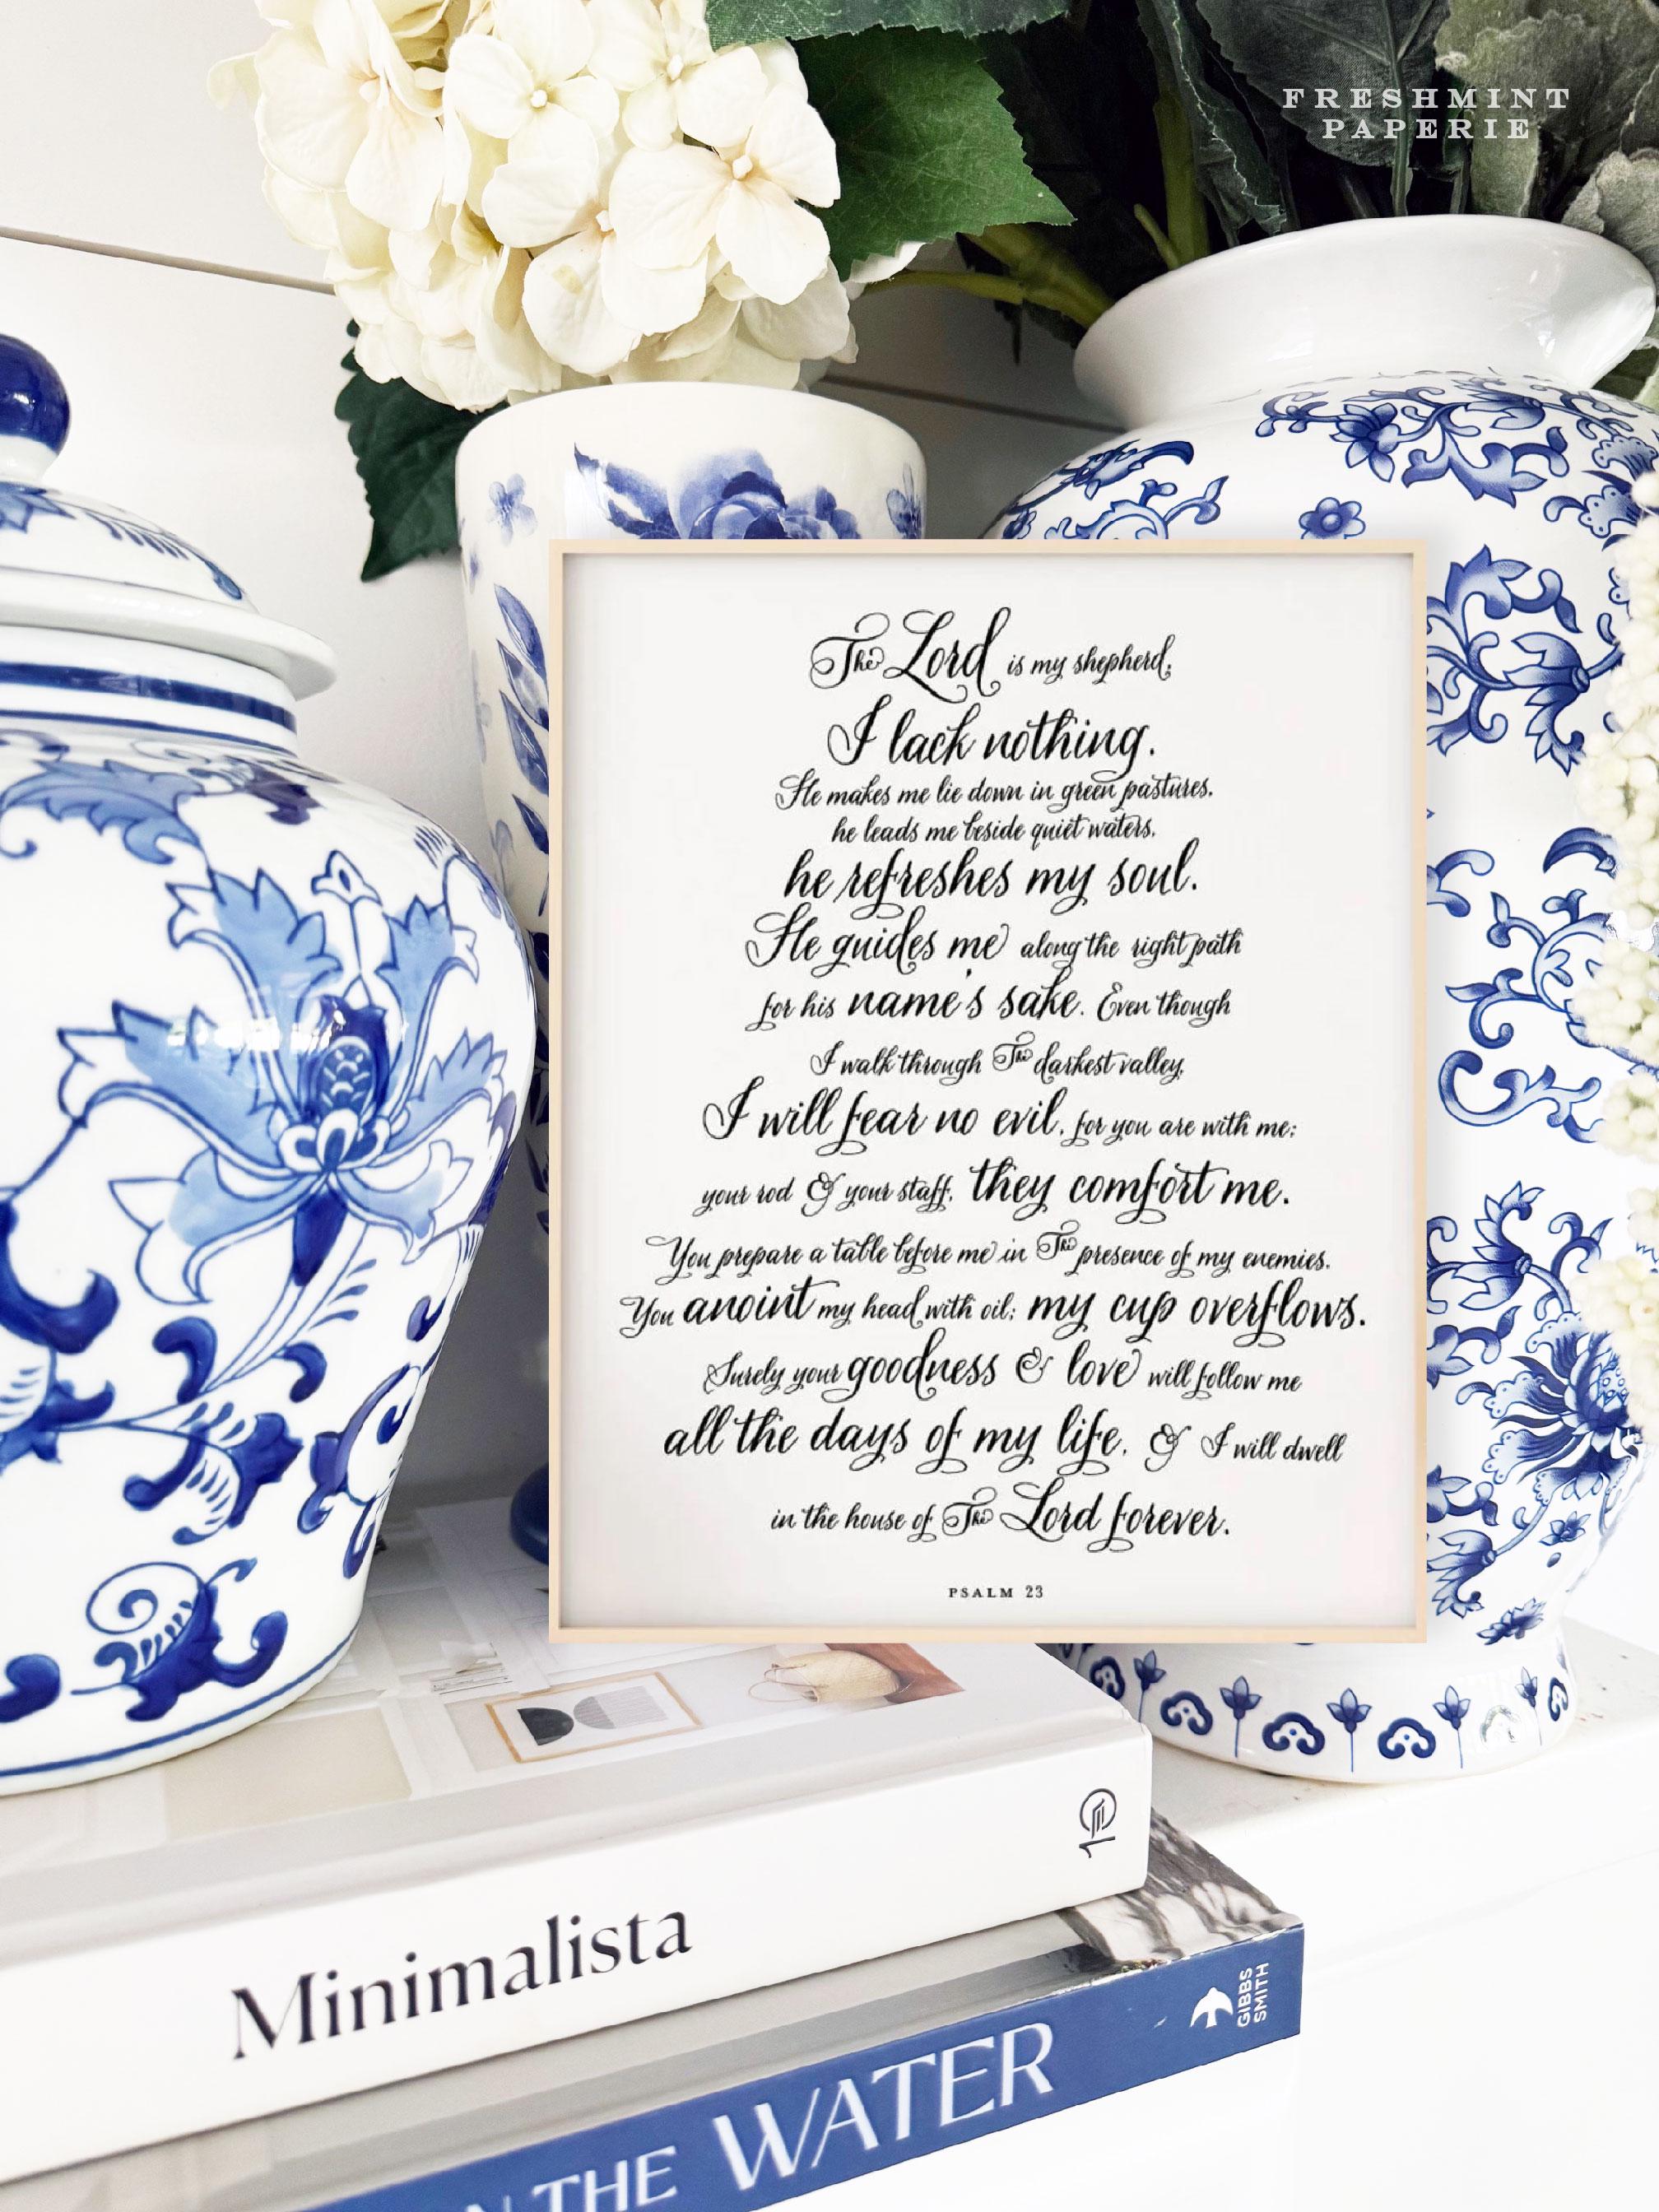 FRESHMINT
PAPERIE
The Lord is my shepherd,
I lack nothing.
He makes me lie down in green pastures,
he leads me beside quiet waters,
he refreshes my soul.
He guides me along the right path
for his name's sake. Even though
I walk through The darkest valley,
I will fear no evil, for you are with me;
your rod & your staff, they comfort me.
You prepare a table before me in The presence of my enemies.
You anoint my head with oil; my cup overflows.
Surely your goodness & love will follow me
all the days of my life, & I will dwell
in the house of The Lord forever.
PSALM 23
Minimalista
GIBBS
SMITH
THE WATER